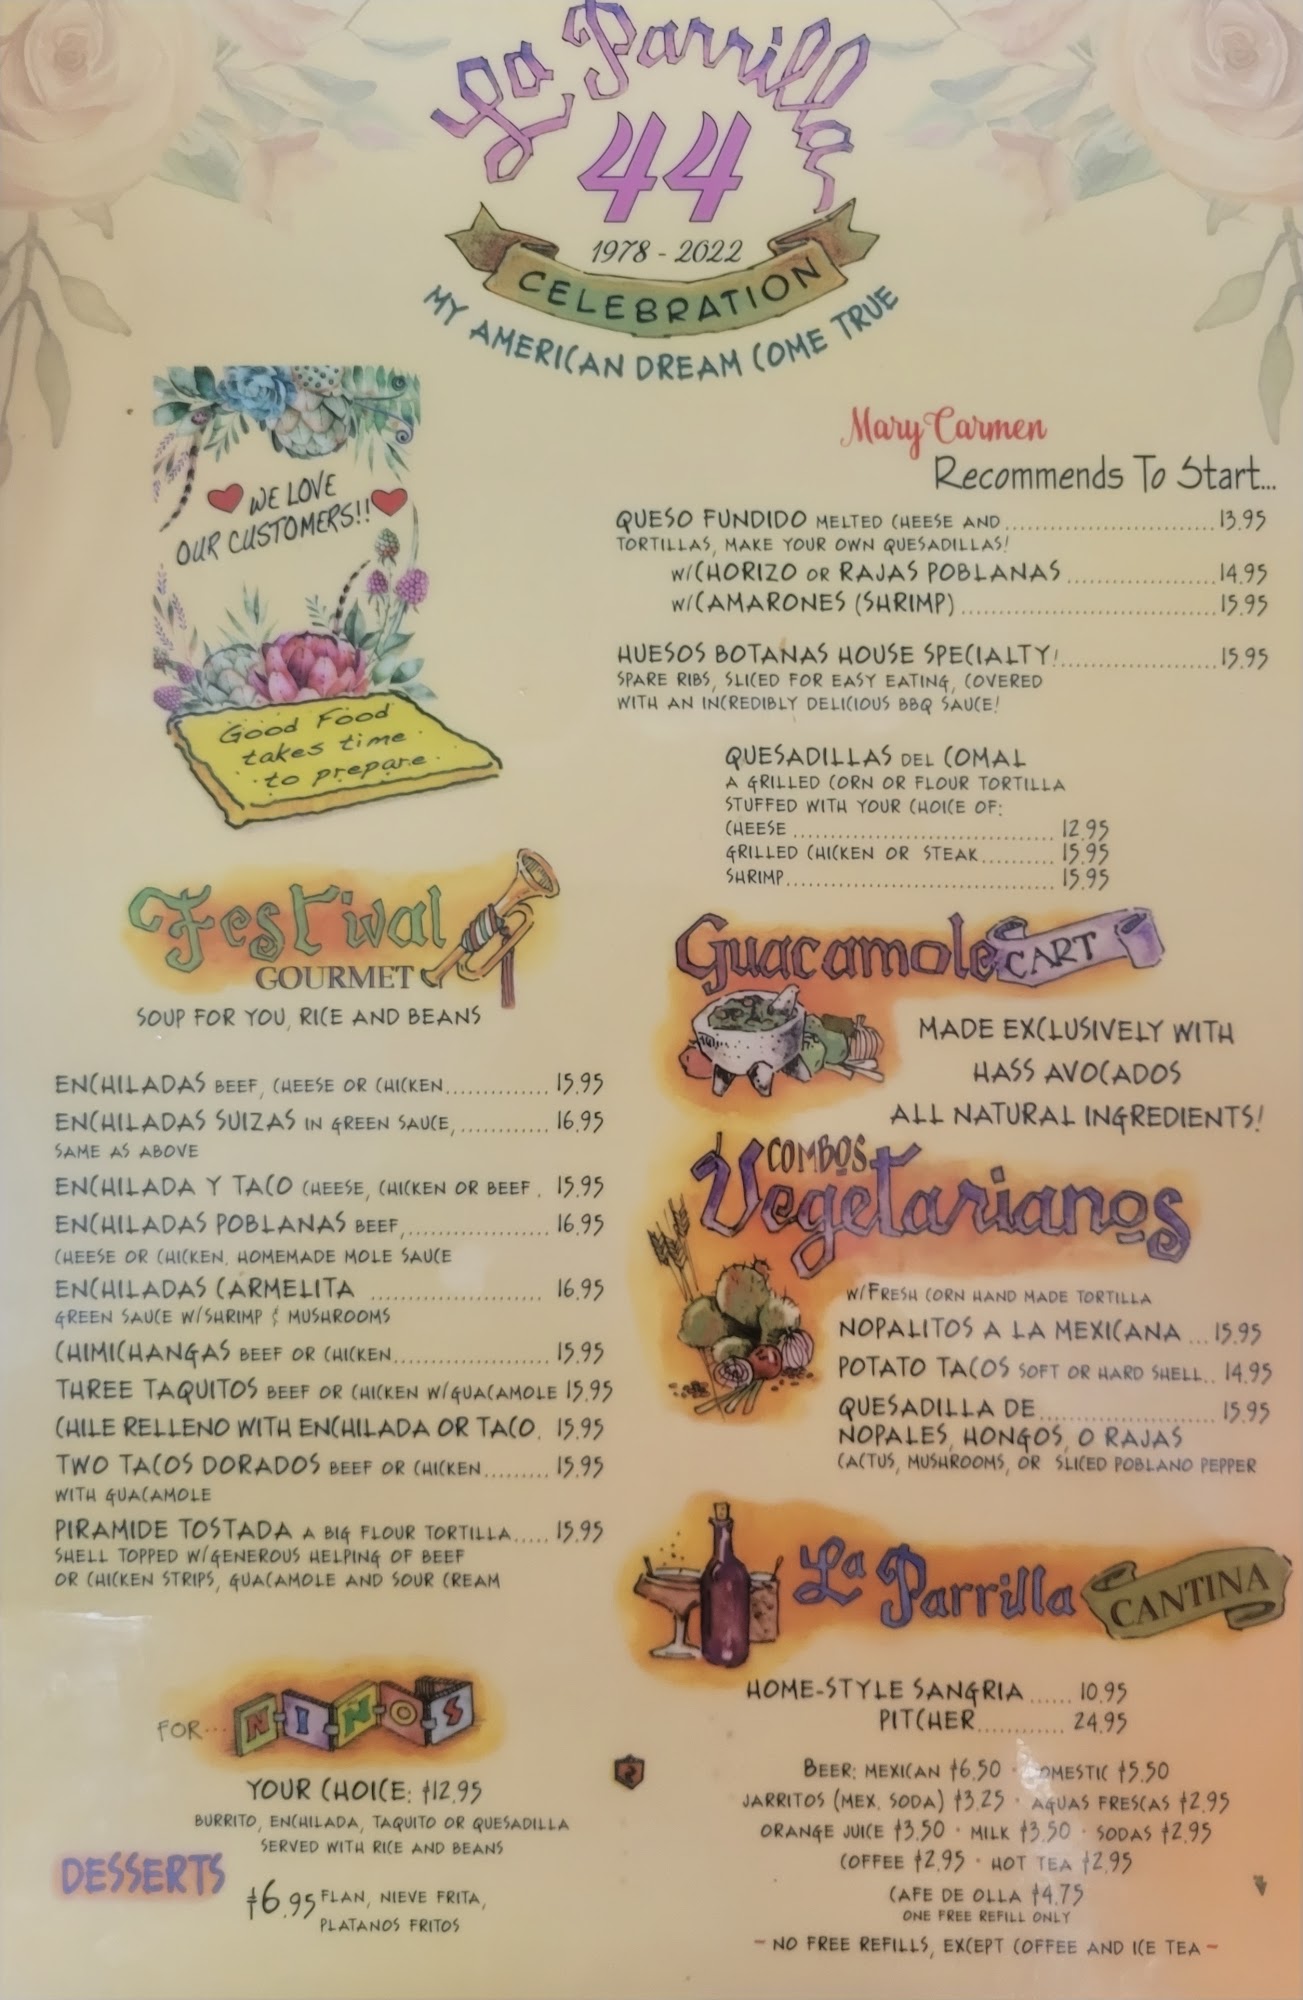 La Parrilla
44
1978 - 2022
CELEBRATION
MY AMERICAN DREAM COME TRUE
WE LOVE
OUR CUSTOMERS!!
Good Food
takes time
to prepare
Mary Carmen
Recommends To Start...
QUESO FUNDIDO MELTED CHEESE AND ........ 13.95
TORTILLAS, MAKE YOUR OWN QUESADILLAS!
W/CHORIZO OR RAJAS POBLANAS ........ 14.95
W/CAMARONES (SHRIMP) ........ 15.95
HUESOS BOTANAS HOUSE SPECIALTY! ........ 15.95
SPARE RIBS, SLICED FOR EASY EATING, COVERED
WITH AN INCREDIBLY DELICIOUS BBQ SAUCE!
QUESADILLAS DEL COMAL
A GRILLED CORN OR FLOUR TORTILLA
STUFFED WITH YOUR CHOICE OF:
CHEESE ........ 12.95
GRILLED CHICKEN OR STEAK ........ 15.95
SHRIMP ........ 15.95
Festival
GOURMET
SOUP FOR YOU, RICE AND BEANS
ENCHILADAS BEEF, CHEESE OR CHICKEN ........ 15.95
ENCHILADAS SUIZAS IN GREEN SAUCE, ........ 16.95
SAME AS ABOVE
ENCHILADA Y TACO CHEESE, CHICKEN OR BEEF . 15.95
ENCHILADAS POBLANAS BEEF, ........ 16.95
CHEESE OR CHICKEN, HOMEMADE MOLE SAUCE
ENCHILADAS CARMELITA ........ 16.95
GREEN SAUCE W/SHRIMP & MUSHROOMS
CHIMICHANGAS BEEF OR CHICKEN ........ 15.95
THREE TAQUITOS BEEF OR CHICKEN W/GUACAMOLE 15.95
CHILE RELLENO WITH ENCHILADA OR TACO. 15.95
TWO TACOS DORADOS BEEF OR CHICKEN ........ 15.95
WITH GUACAMOLE
PIRAMIDE TOSTADA A BIG FLOUR TORTILLA ..... 15.95
SHELL TOPPED W/GENEROUS HELPING OF BEEF
OR CHICKEN STRIPS, GUACAMOLE AND SOUR CREAM
FOR... NINOS
YOUR CHOICE: $12.95
BURRITO, ENCHILADA, TAQUITO OR QUESADILLA
SERVED WITH RICE AND BEANS
DESSERTS
$6.95 FLAN, NIEVE FRITA,
PLATANOS FRITOS
Guacamole CART
MADE EXCLUSIVELY WITH
HASS AVOCADOS
ALL NATURAL INGREDIENTS!
COMBOS
Vegetarianos
W/FRESH CORN HAND MADE TORTILLA
NOPALITOS A LA MEXICANA ... 15.95
POTATO TACOS SOFT OR HARD SHELL.. 14.95
QUESADILLA DE ........ 15.95
NOPALES, HONGOS, O RAJAS
CACTUS, MUSHROOMS, OR SLICED POBLANO PEPPER
La Parrilla CANTINA
HOME-STYLE SANGRIA ...... 10.95
PITCHER ........ 24.95
BEER: MEXICAN $6.50 · DOMESTIC $5.50
JARRITOS (MEX. SODA) $3.25 · AGUAS FRESCAS $2.95
ORANGE JUICE $3.50 · MILK $3.50 · SODAS $2.95
COFFEE $2.95 · HOT TEA $2.95
CAFE DE OLLA $4.75
ONE FREE REFILL ONLY
- NO FREE REFILLS, EXCEPT COFFEE AND ICE TEA -